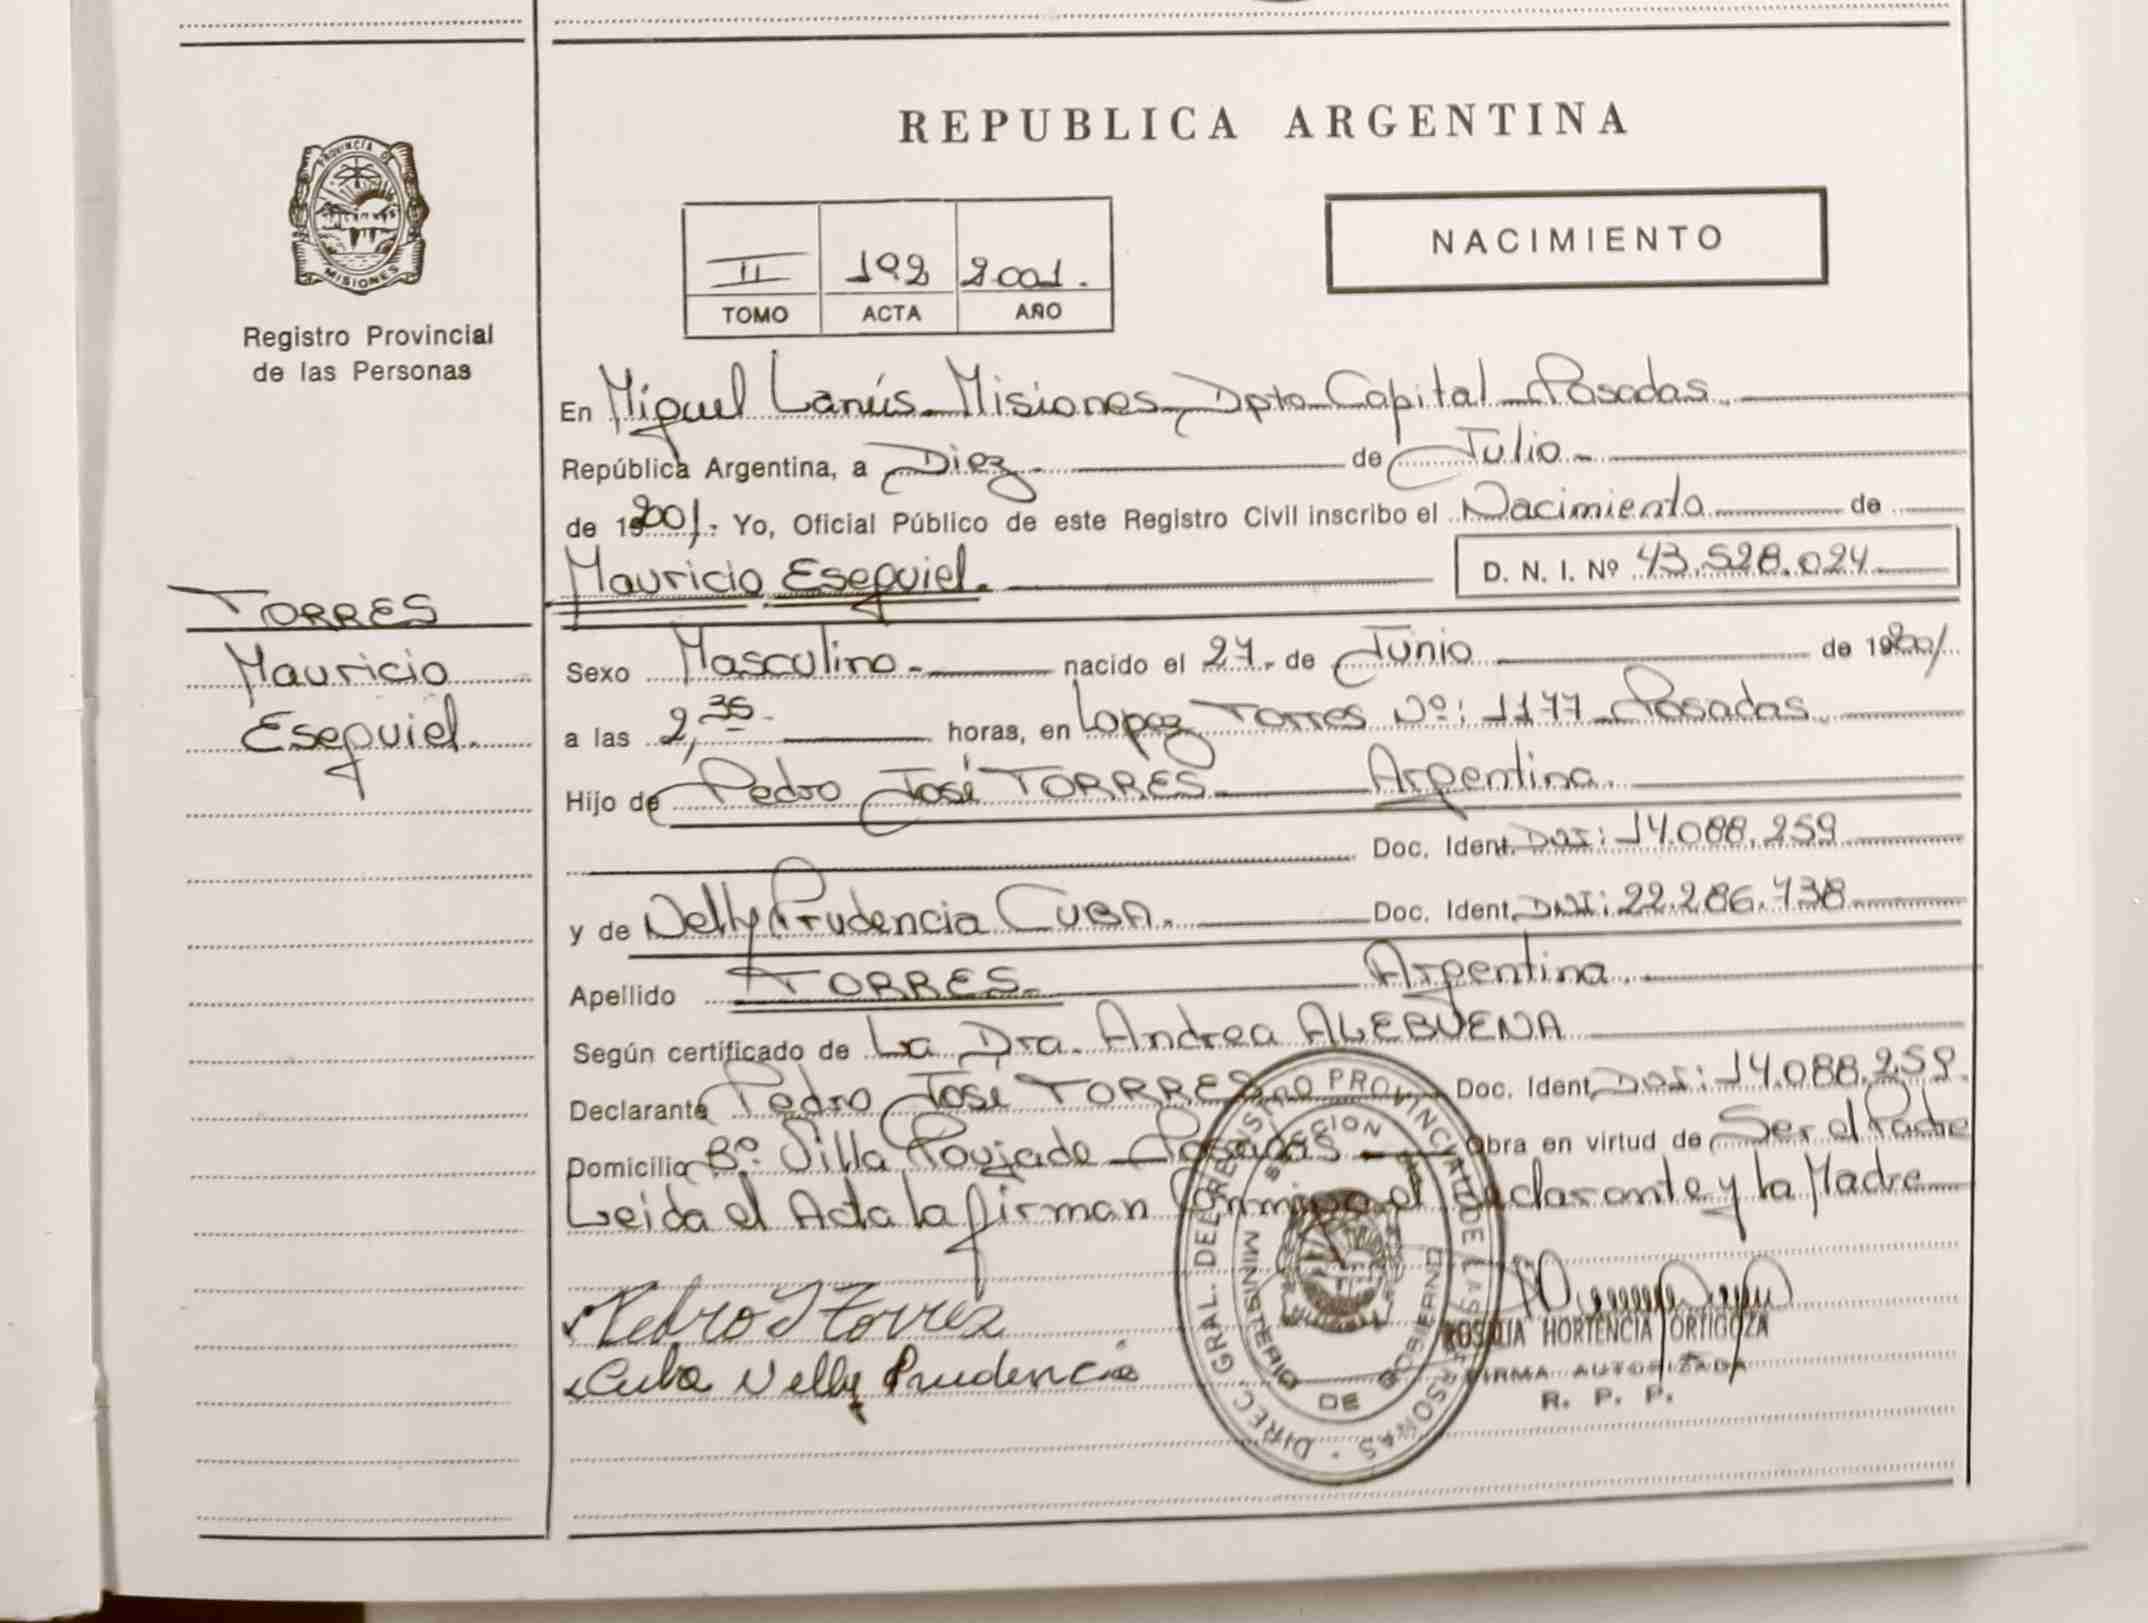 PROVINCIA DE
MISIONES
Registro Provincial
de las Personas
TORRES
Mauricio
Esequiel.
REPUBLICA ARGENTINA
II 192 2001.
TOMO ACTA AÑO
NACIMIENTO
En Miguel Lanús - Misiones, Dpto Capital - Posadas.
República Argentina, a Diez. de Julio.
de 2001. Yo, Oficial Público de este Registro Civil inscribo el Nacimiento de
Mauricio Esequiel. D. N. I. Nº 43.528.024
Sexo Masculino. nacido el 27. de Junio de 2001
a las 2,35 horas, en Lopez Torres Nº: 1177 - Posadas.
Hijo de Pedro José TORRES Argentina.
Doc. Ident. DNI: 14.088.259
y de Nelly Prudencia CUBA. Doc. Ident. DNI: 22.286.738
Apellido TORRES. Argentina.
Según certificado de La Dra. Andrea ALEBUENA
Declarante Pedro José TORRES Doc. Ident. DNI: 14.088.259.
Domicilio Bº. Villa Poujade - Posadas Obra en virtud de Ser el Padre
Leida el Acta la firman Conmigo el declarante y la Madre
Pedro J Torres
Cuba Nelly Prudencia
DIREC. GRAL. DEL REGISTRO PROVINCIAL DE LAS PERSONAS
MINISTERIO DE GOBIERNO
HORTENCIA ORTIGOZA
FIRMA AUTORIZADA
R. P. P.